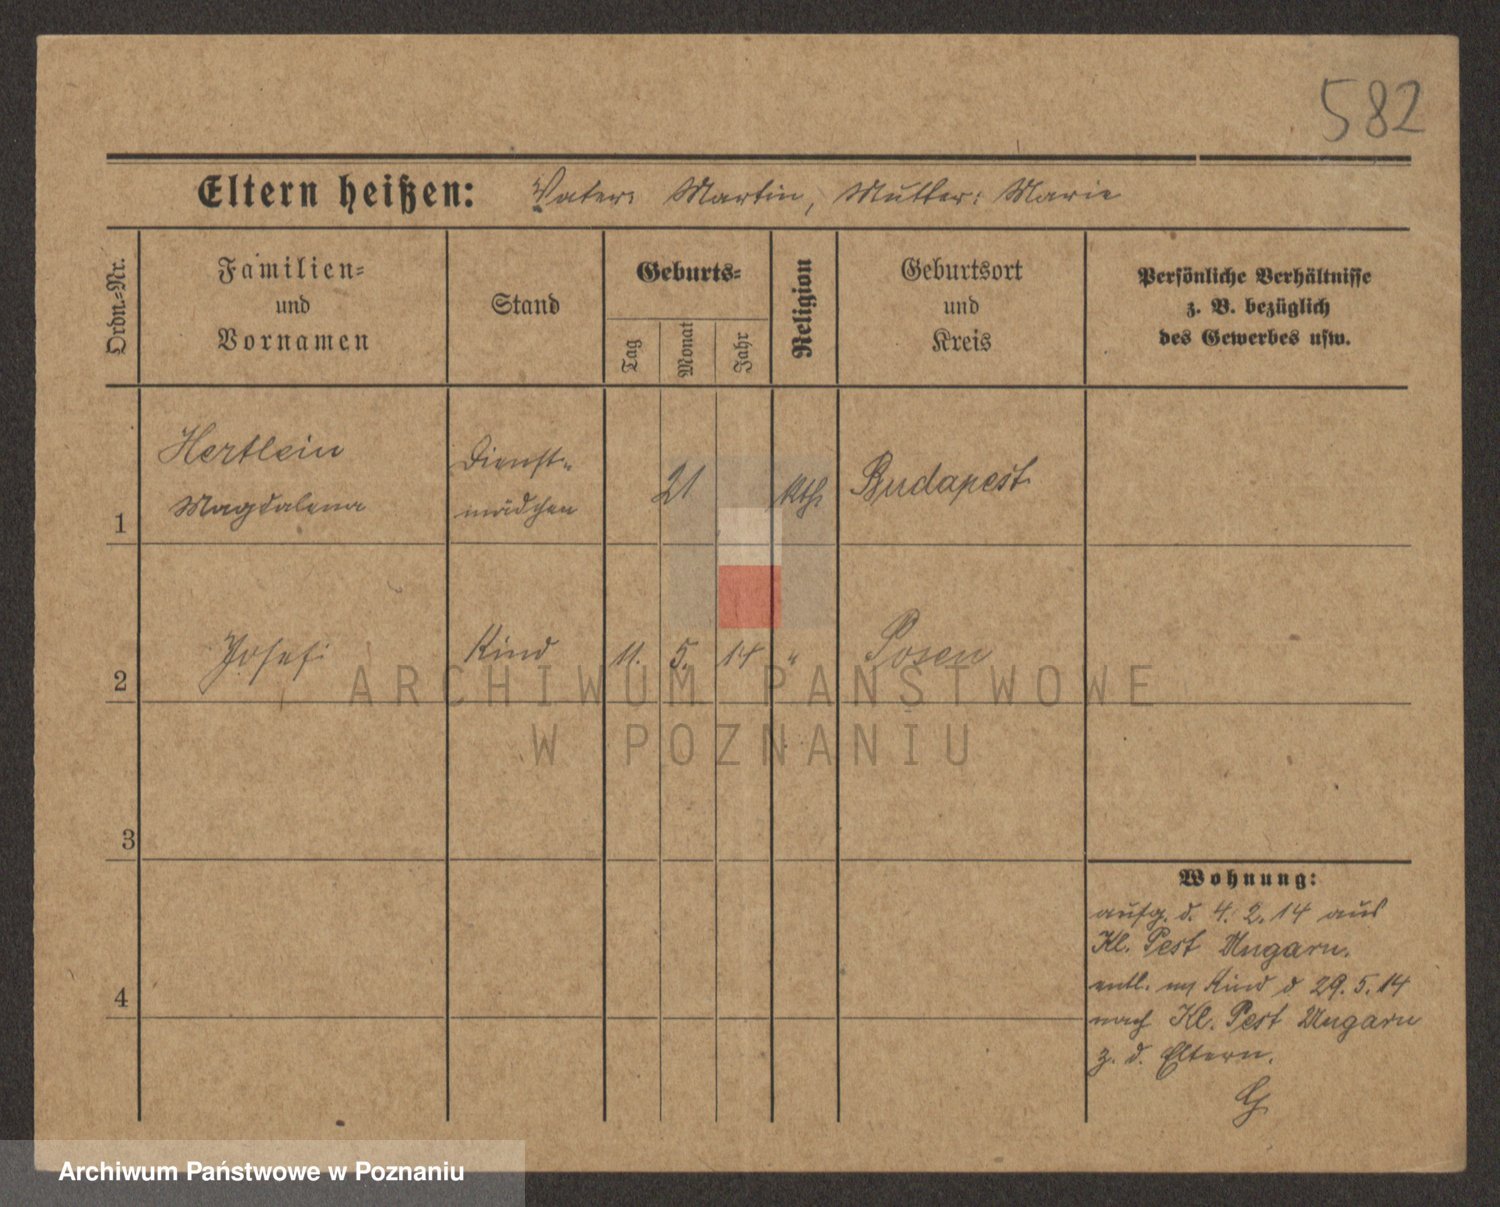 582
Eltern heißen: Vater: Martin, Mutter: Marie
Ordn.-Nr.
Familien-
und
Vornamen
Stand
Geburts-
Tag
Monat
Jahr
Religion
Geburtsort
und
Kreis
Persönliche Verhältnisse
z. B. bezüglich
des Gewerbes usw.
1
Hertlein
Magdalena
Dienst-
mädchen
21
kth.
Budapest
2
Josef
Kind
11. 5. 14
"
Posen
ARCHIWUM PAŃSTWOWE
W POZNANIU
3
4
Wohnung:
aufg. d. 4. 2. 14 aus
Kl. Pest Ungarn.
entl. m Kind d 29. 5. 14
nach Kl. Pest Ungarn
z. d. Eltern.
Archiwum Państwowe w Poznaniu